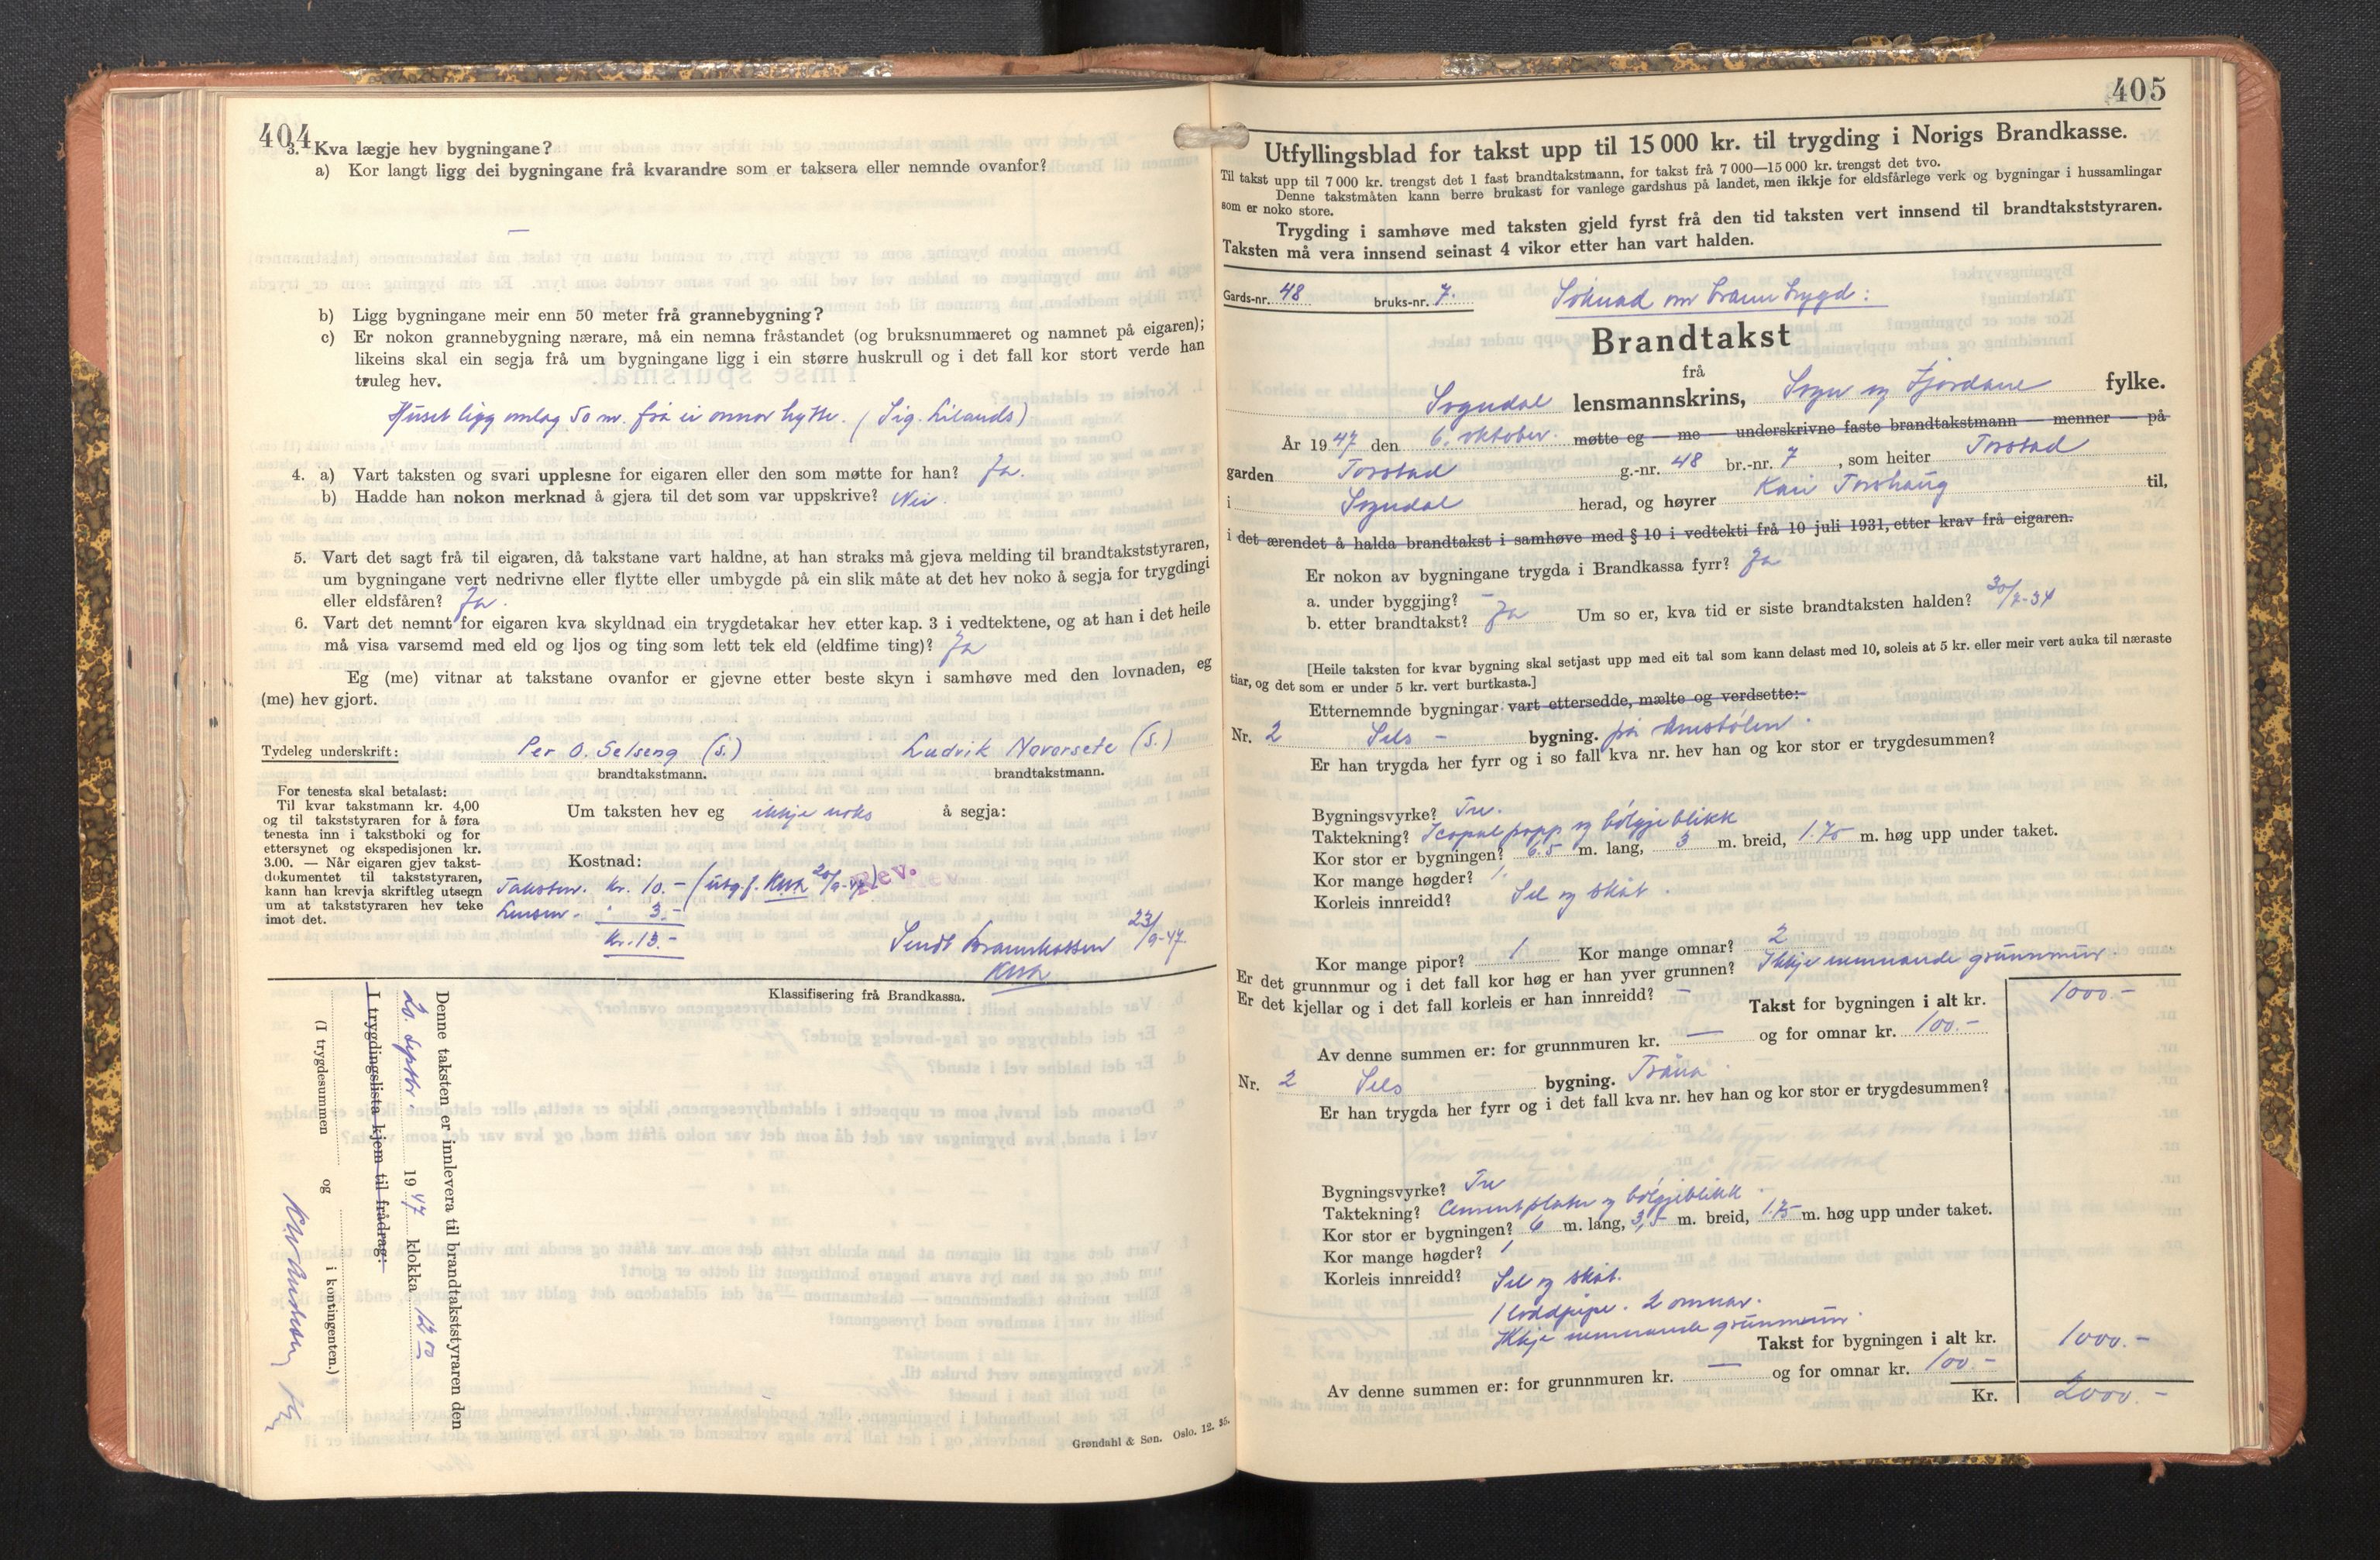 404
3. Kva lægje hev bygningane?
a) Kor langt ligg dei bygningane frå kvarandre som er taksera eller nemnde ovanfor?
—
b) Ligg bygningane meir enn 50 meter frå grannebygning?
c) Er nokon grannebygning nærare, må ein nemna fråstandet (og bruksnummeret og namnet på eigaren);
likeins skal ein segja frå um bygningane ligg i ein større huskrull og i det fall kor stort verde han
truleg hev.
Huset ligg omlag 50 m. frå ei onnor hytte. (Sig. Lilands)
4. a) Vart taksten og svari upplesne for eigaren eller den som møtte for han? Ja.
b) Hadde han nokon merknad å gjera til det som var uppskrive? Nei.
5. Vart det sagt frå til eigaren, då takstane vart haldne, at han straks må gjeva melding til brandtakststyraren,
um bygningane vert nedrivne eller flytte eller umbygde på ein slik måte at det hev noko å segja for trygdingi
eller eldsfåren? Ja.
6. Vart det nemnt for eigaren kva skyldnad ein trygdetakar hev etter kap. 3 i vedtektene, og at han i det heile
må visa varsemd med eld og ljos og ting som lett tek eld (eldfime ting)? Ja
Eg (me) vitnar at takstane ovanfor er gjevne etter beste skyn i samhøve med den lovnaden, eg
(me) hev gjort.
Tydeleg underskrift: Per O. Selseng (s.) Ludvik Navarsete (s.)
brandtakstmann. brandtakstmann.
For tenesta skal betalast:
Til kvar takstmann kr. 4,00
og til takststyraren for å føra
tenesta inn i takstboki og for
ettersynet og ekspedisjonen kr.
3.00. — Når eigaren gjev takst-
dokumentet til takststyraren,
kann han krevja skriftleg utsegn
um at takststyraren hev teke
imot det.
Um taksten hev eg ikkje noko å segja:
Kostnad:
Takstm. kr. 10.- (utg. f. 20/9-47). Rev.
Lensm. " 3.-
Kr. 13.-
Sendt Brannkassen 23/9-47.
Klassifisering frå Brandkassa.
Denne taksten er innlevera til brandtakststyraren den
20. septbr. 1947 klokka 12 00
I trygdingslista kjem til frådrag:
(I trygdesummen og i kontingenten.)
Grøndahl & Søn. Oslo. 12. 35.
405
Utfyllingsblad for takst upp til 15 000 kr. til trygding i Norigs Brandkasse.
Til takst upp til 7 000 kr. trengst det 1 fast brandtakstmann, for takst frå 7 000—15 000 kr. trengst det tvo.
Denne takstmåten kann berre brukast for vanlege gardshus på landet, men ikkje for eldsfårlege verk og bygningar i hussamlingar
som er noko store.
Trygding i samhøve med taksten gjeld fyrst frå den tid taksten vert innsend til brandtakststyraren.
Taksten må vera innsend seinast 4 vikor etter han vart halden.
Gards-nr. 48 bruks-nr. 7. Søknad om branntrygd:
Brandtakst
frå
Sogndal lensmannskrins, Sogn og Fjordane fylke.
År 1947 den 6. oktober. møtte eg — me — underskrivne faste brandtakstmann — menner — på
garden Torstad g.-nr. 48 br.-nr. 7, som heiter Torstad
i Sogndal herad, og høyrer Kari Torshaug til,
i det ærendet å halda brandtakst i samhøve med § 10 i vedtekti frå 10 juli 1931, etter krav frå eigaren.
Er nokon av bygningane trygda i Brandkassa fyrr? Ja
a. under byggjing? —
b. etter brandtakst? Ja Um so er, kva tid er siste brandtaksten halden? 30/7-34
[Heile taksten for kvar bygning skal setjast upp med eit tal som kann delast med 10, soleis at 5 kr. eller meir vert auka til næraste
tiar, og det som er under 5 kr. vert burtkasta.]
Etternemnde bygningar vart ettersedde, mælte og verdsette:
Nr. 2 Sels - bygning. på Anestølen.
Er han trygda her fyrr og i so fall kva nr. hev han og kor stor er trygdesummen?
Bygningsvyrke? Tre.
Taktekning? Icopal papp og bølgjeblikk
Kor stor er bygningen? 6.5 m. lang, 3 m. breid, 1.75 m. høg upp under taket.
Kor mange høgder? 1.
Korleis innreidd? Sel og skåt.
Kor mange pipor? 1 Kor mange omnar? 2
Er det grunnmur og i det fall kor høg er han yver grunnen? Ikkje nemnande grunnmur.
Er det kjellar og i det fall korleis er han innreidd? —
Takst for bygningen i alt kr. 1000.-
Av denne summen er: for grunnmuren kr. — og for omnar kr. 100.-
Nr. 2 Sels bygning. Tråna
Er han trygda her fyrr og i det fall kva nr. hev han og kor stor er trygdesummen?
Bygningsvyrke? Tre
Taktekning? Cementplater og bølgjeblikk
Kor stor er bygningen? 6 m. lang, 3,5 m. breid, 1.75 m. høg upp under taket.
Kor mange høgder? 1
Korleis innreidd? Sel og skåt.
1 loddpipe. 2 omnar.
Ikkje nemnande grunnmur.
Takst for bygningen i alt kr. 1000.-
Av denne summen er: for grunnmuren kr. — og for omnar kr. 100.-
Kr. 2000.-